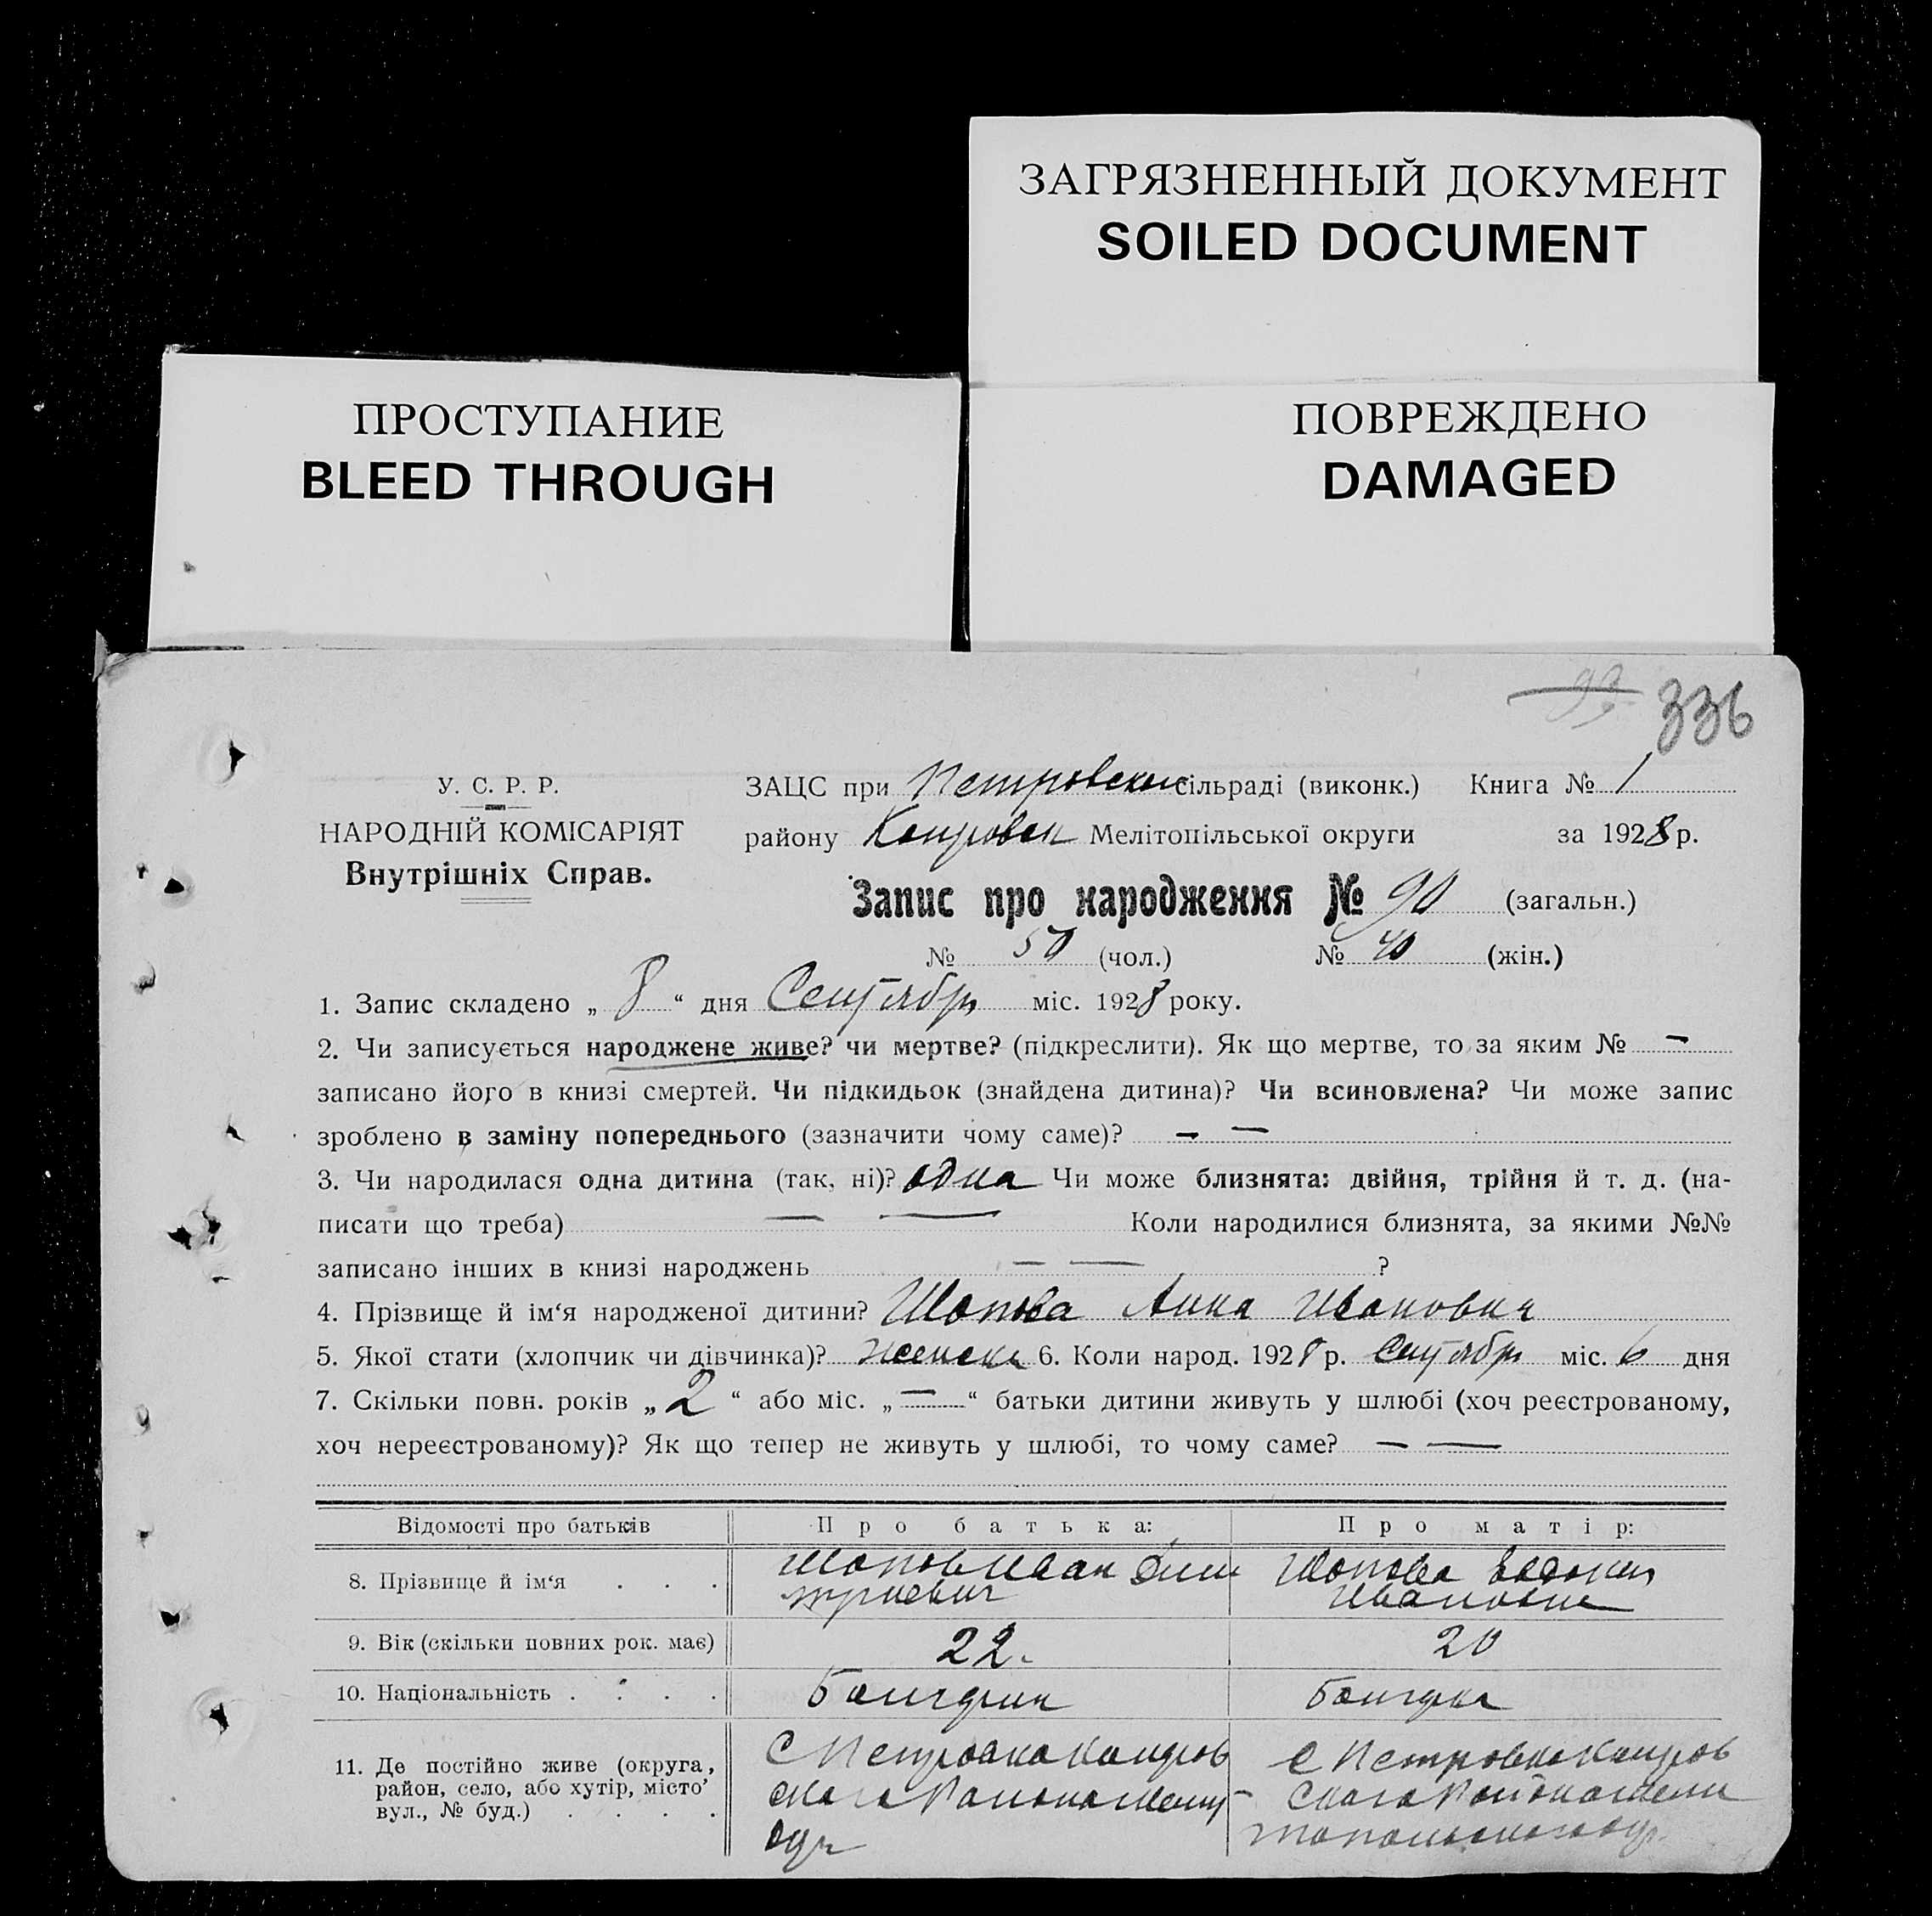 ЗАГРЯЗНЕННЫЙ ДОКУМЕНТ
SOILED DOCUMENT
ПРОСТУПАНИЕ
BLEED THROUGH
ПОВРЕЖДЕНО
DAMAGED
336
У. С. Р. Р.
НАРОДНІЙ КОМІСАРІЯТ
Внутрішніх Справ.
ЗАЦС при Петровском сільраді (виконк.) Книга № 1
району Мелітопільської округи за 1928 р.
Запис про народження № 90 (загальн.)
№ 50 (чол.) № 40 (жін.)
1. Запис складено „ 8 “ дня Сентября міс. 1928 року.
2. Чи записується народжене живе? чи мертве? (підкреслити). Як що мертве, то за яким № —
записано його в книзі смертей. Чи підкидьок (знайдена дитина)? Чи всиновлена? Чи може запис
зроблено в заміну попереднього (зазначити чому саме)? — —
3. Чи народилася одна дитина (так, ні)? одна Чи може близнята: двійня, трійня й т. д. (на-
писати що треба) — — Коли народилися близнята, за якими №№
записано інших в книзі народжень — — ?
4. Прізвище й ім‘я народженої дитини? Шопова Анна Ивановна
5. Якої стати (хлопчик чи дівчинка)? женска 6. Коли народ. 1928 р. Сентября міс. 6 дня
7. Скільки повн. років „ 2 “ або міс. „ — “ батьки дитини живуть у шлюбі (хоч реєстрованому,
хоч нереєстрованому)? Як що тепер не живуть у шлюбі, то чому саме? — —
Відомості про батьків Про батька: Про матір:
8. Прізвище й ім‘я . . . Шопов Иван Дми Шопова Евдокия
триевич Ивановна
9. Вік (скільки повних рок. має) 22. 20
10. Національність . . . . Болгарин Болгарка
11. Де постійно живе (округа, С Петровка С Петровка
район, село, або хутір, місто’
вул., № буд.) . . . . окр